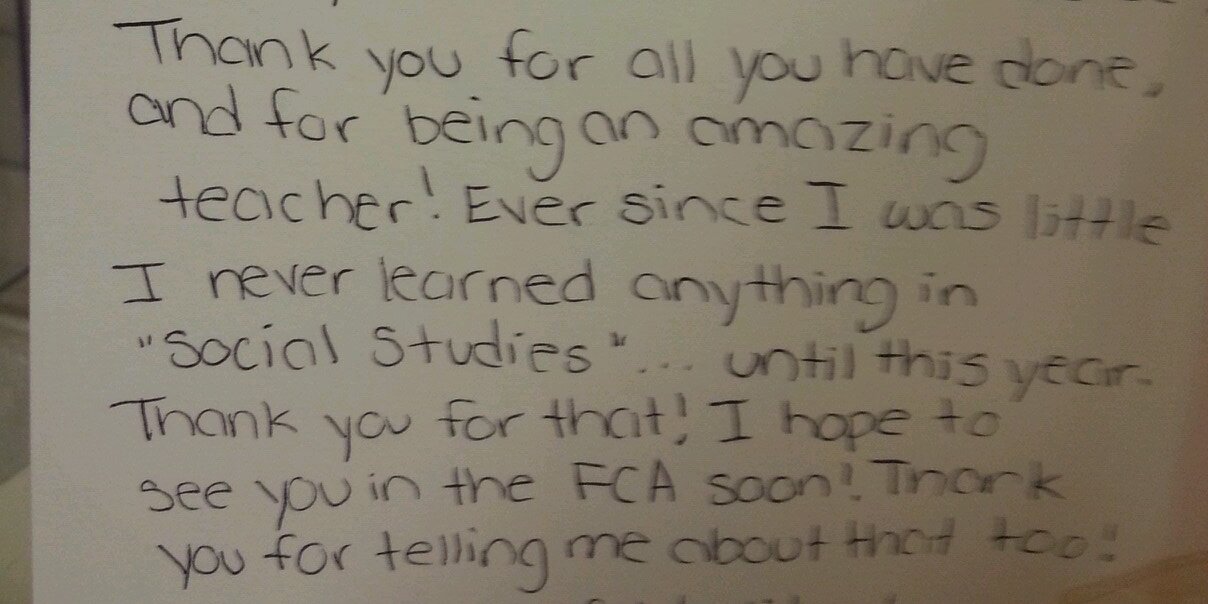 Thank you for all you have done,
and for being an amazing
teacher! Ever since I was little
I never learned anything in
"Social Studies"... until this year.
Thank you for that! I hope to
see you in the FCA soon! Thank
you for telling me about that too!